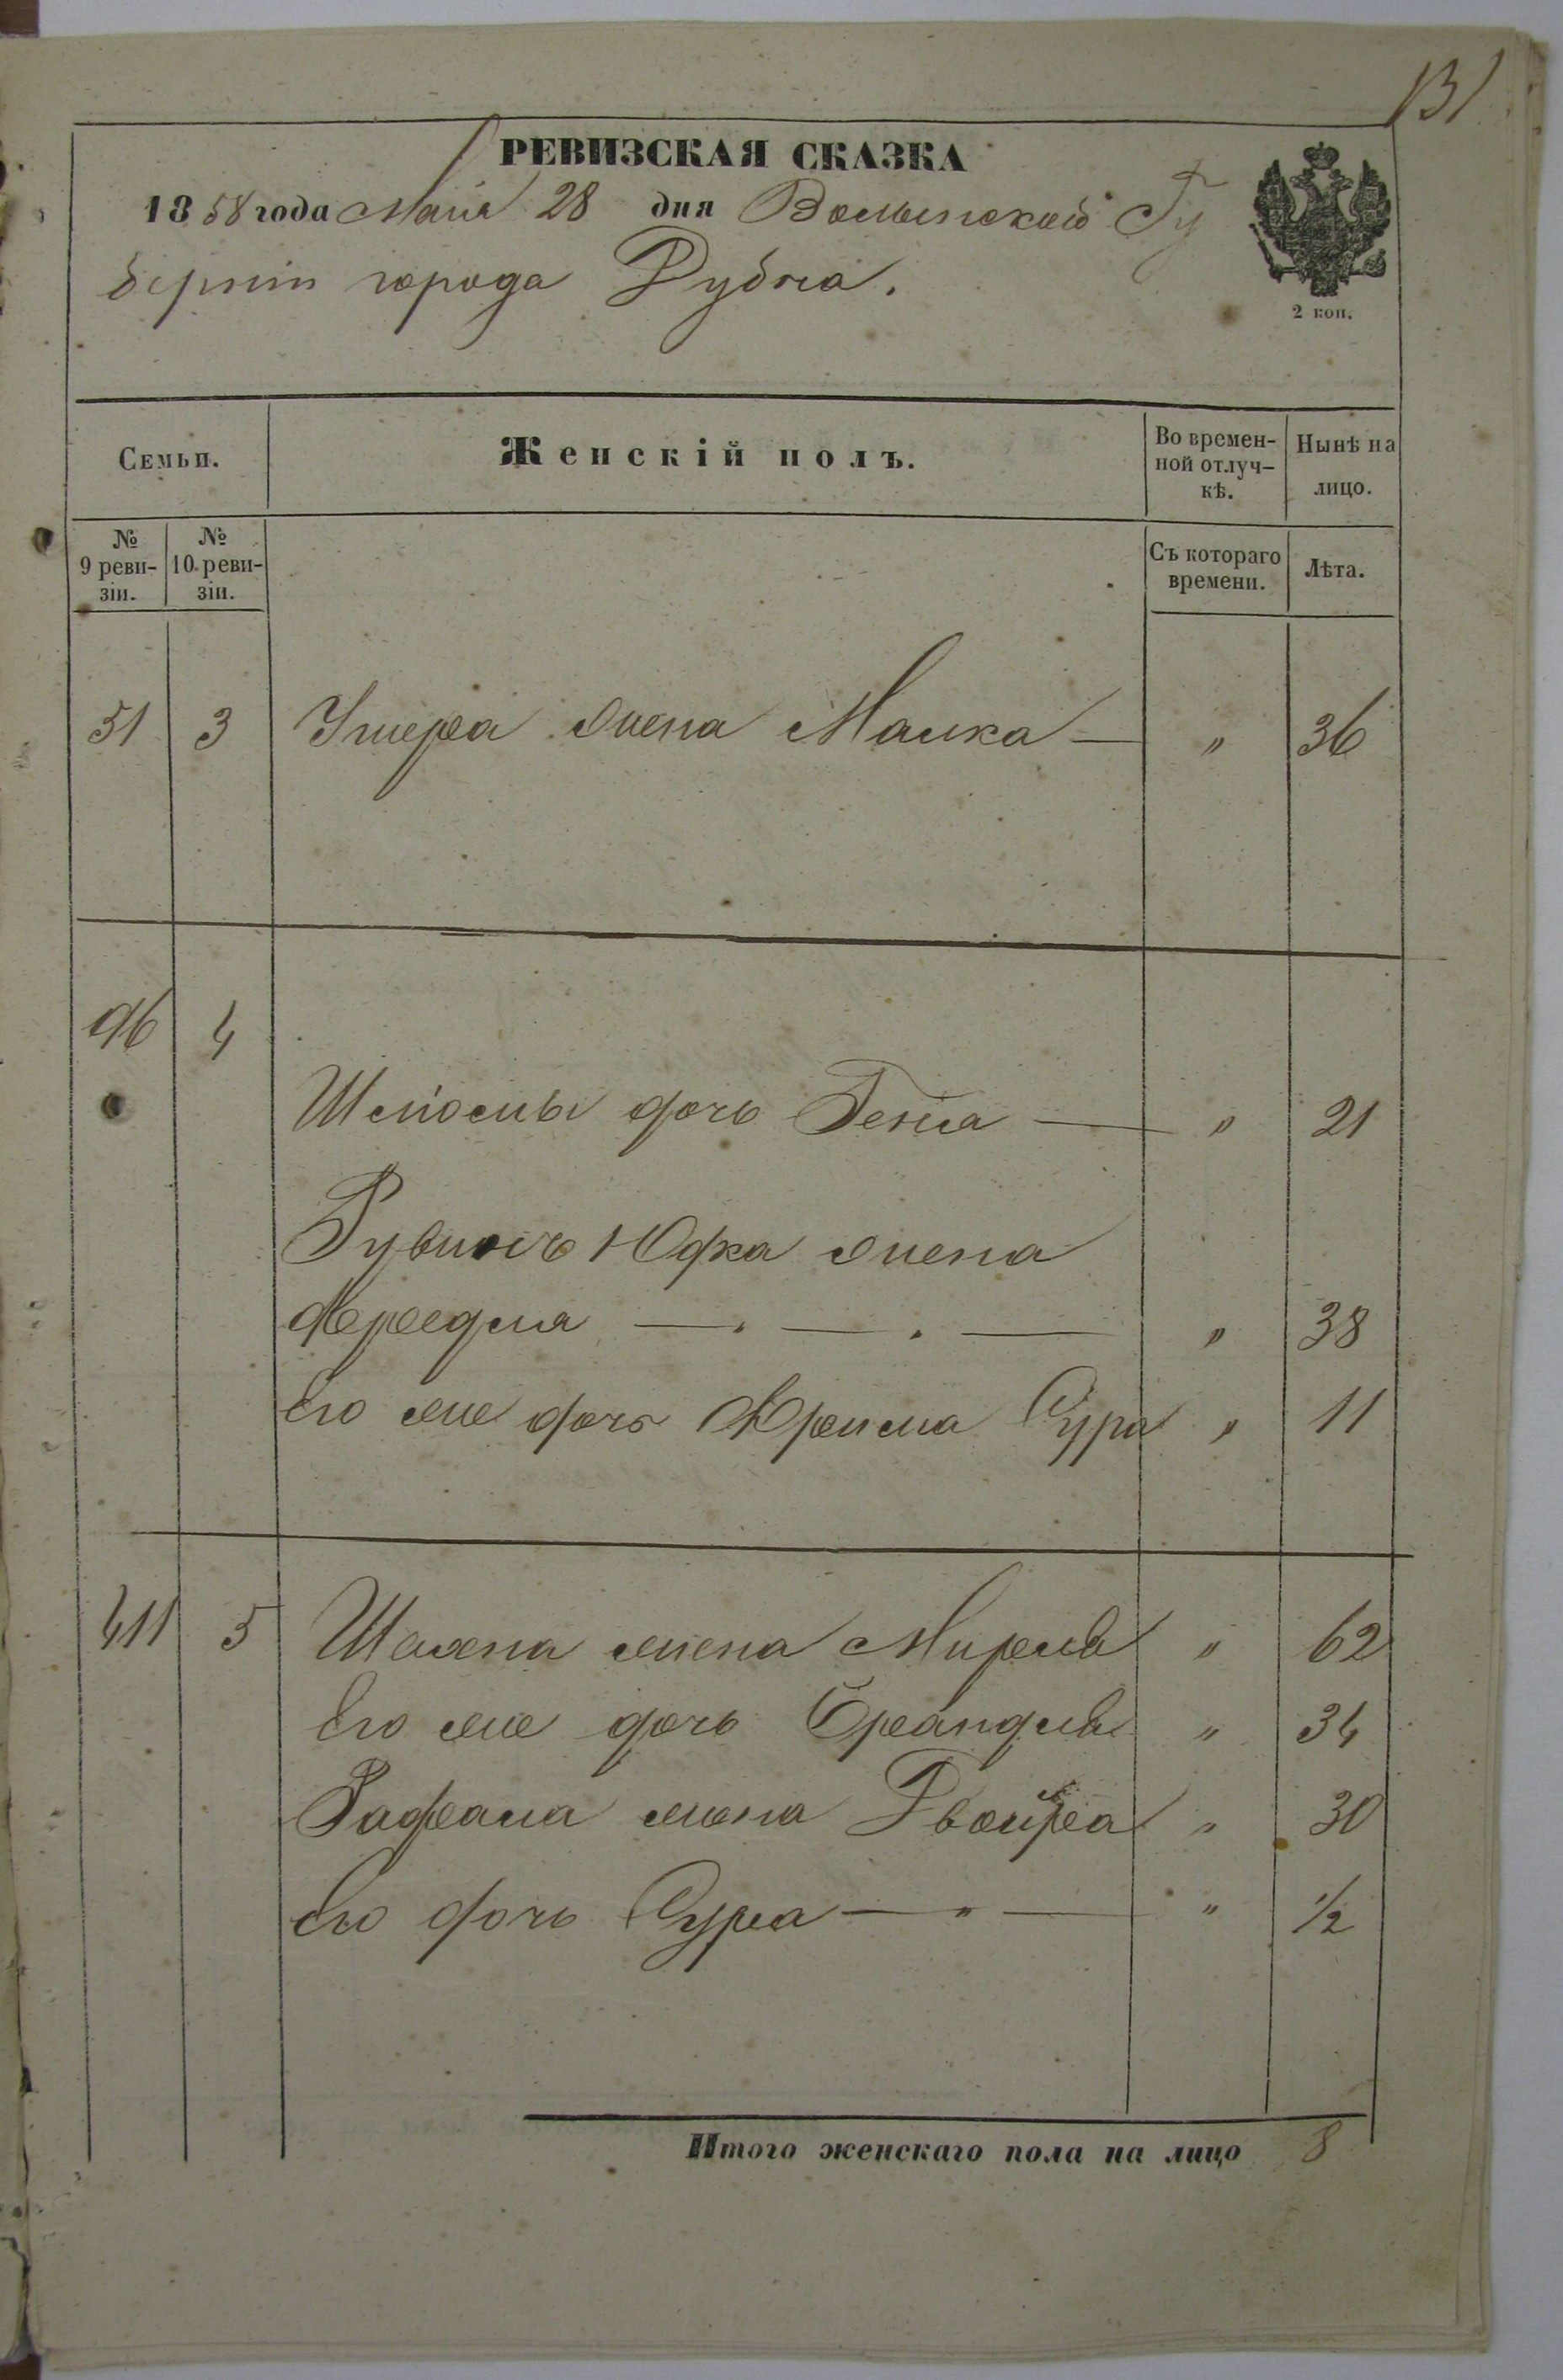 131
РЕВИЗСКАЯ СКАЗКА
1858 года Маія 28 дня Волынской Гу
берніи города Дубна.
2 коп.
Семьи. Женскій полъ. Во времен- Нынѣ на
ной отлуч- лицо.
кѣ.
№ № Съ котораго Лѣта.
9 реви- 10. реви- времени.
зіи. зіи.
51 3 жена Малка — " 36
96 4
Шлiомы дочь Геня — " 21
Рувинъ Юфка жена
Фрейдля — . — . — " 38
Его же дочь Фрима Сура " 11
411 5 жена Мирля " 62
Его же дочь Брандля " 34
Рафала жена Двойра " 30
Его дочь Сура — " — " 1/2
Итого женскаго пола на лицо 8